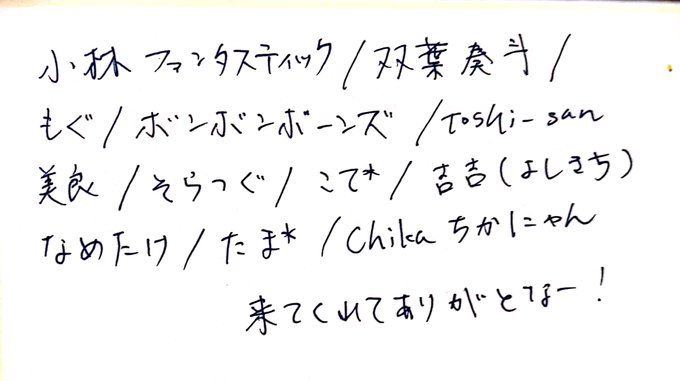 小林ファンタスティック/双葉奏斗/
もぐ/ボンボンボーンズ/toshi-san
美良/そらつぐ/こて*/吉吉(よしきち)
なめたけ/たま*/Chikaちかにゃん
来てくれてありがとなー!